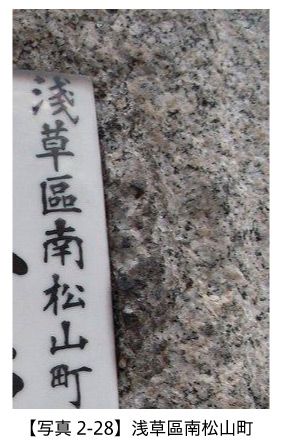 浅草區南松山町
【写真 2-28】浅草區南松山町